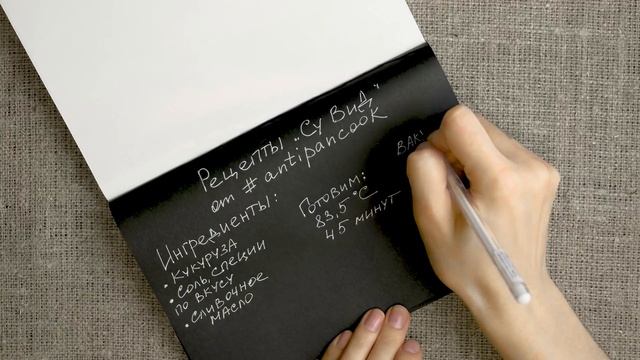 Рецепты „Су Вид"
от #antipancook
Ингредиенты:
• кукуруза
• соль, специи
по вкусу
• сливочное
масло
Готовим:
83,5 °C
45 минут